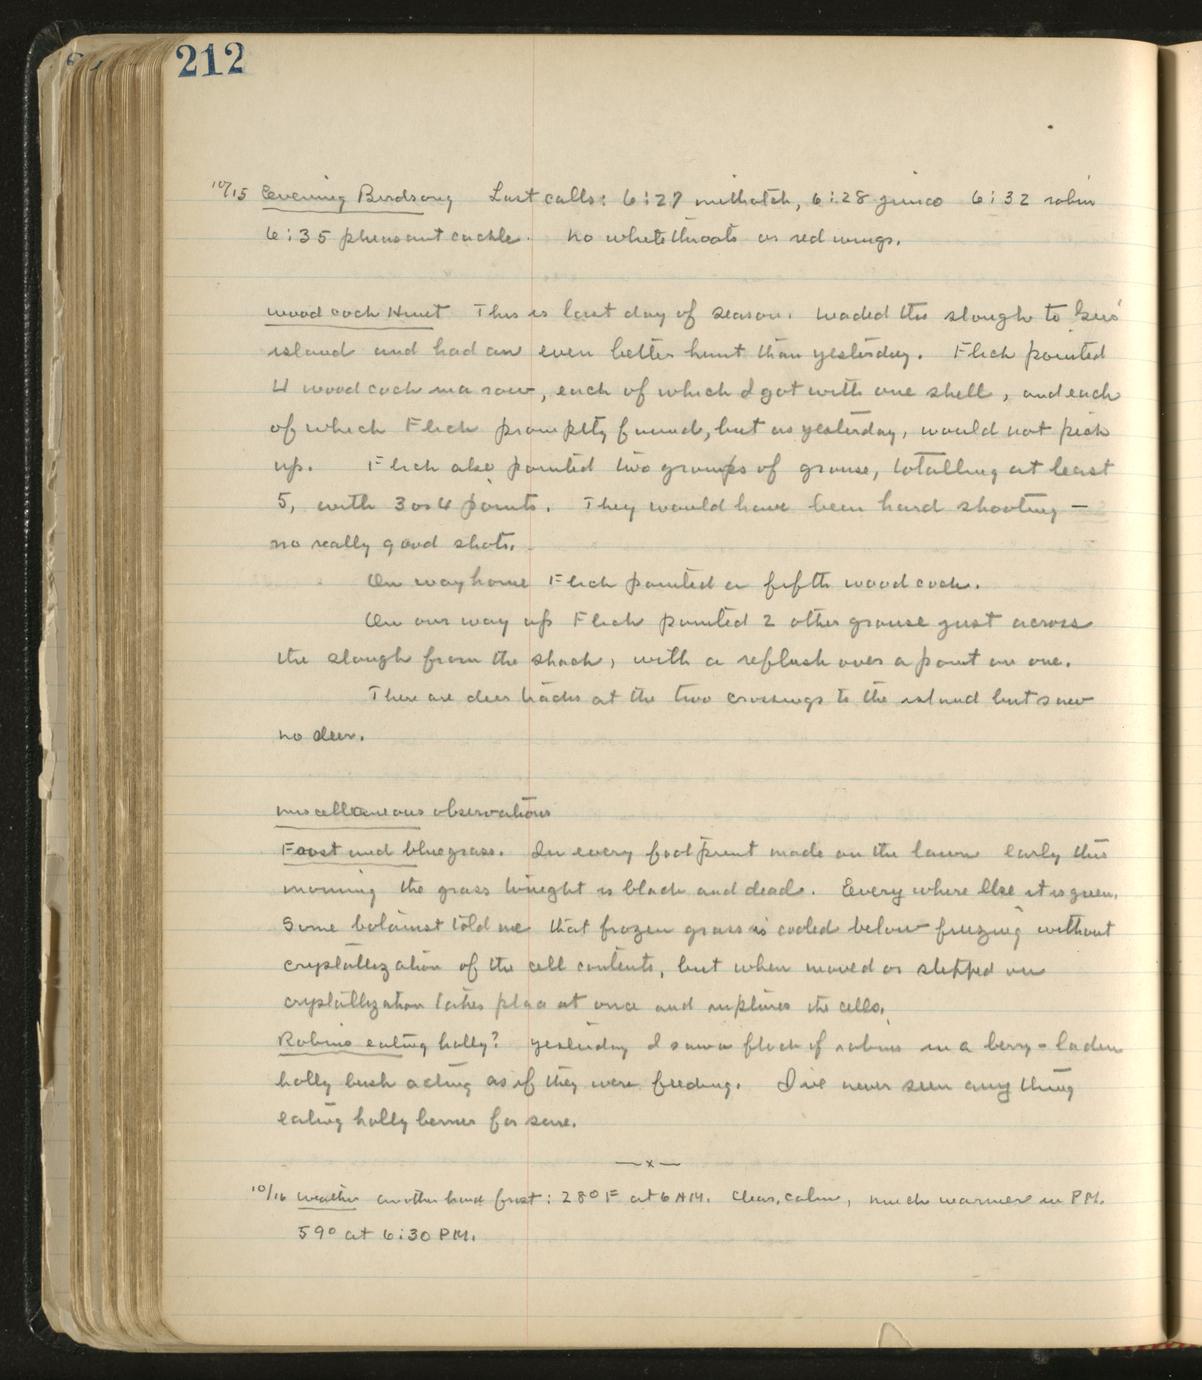 212
10/15 Evening Birdsong Last calls: 6:27 nuthatch, 6:28 junco 6:32 robin
6:35 pheasant cackle. No whitethroats or redwings.
Woodcock Hunt This is last day of season. Waded the slough to Gus'
island and had an even better hunt than yesterday. Flick pointed
4 woodcock in a row, each of which I got with one shell, and each
of which Flick promptly found, but as yesterday, would not pick
up. Flick also pointed two groups of grouse, totalling at least
5, with 3 or 4 points. They would have been hard shooting —
no really good shots.
On way home Flick pointed a fifth woodcock.
On our way up Flick pointed 2 other grouse just across
the slough from the shack, with a reflush over a point on one.
There are deer tracks at the two crossings to the island but saw
no deer.
Miscellaneous observations
Frost and bluegrass. In every footprint made on the lawn early this
morning the grass tonight is black and dead. Everywhere else it is green.
Some botanist told me that frozen grass is cooled below freezing without
crystallization of the cell contents, but when moved or stepped on
crystallization takes place at once and ruptures the cells.
Robins eating holly? Yesterday I saw a flock of robins in a berry-laden
holly bush acting as if they were feeding. I've never seen anything
eating holly berries for sure.
—x—
10/16 Weather another hard frost: 28° F at 6 AM. Clear, calm, much warmer in PM.
59° at 6:30 PM.